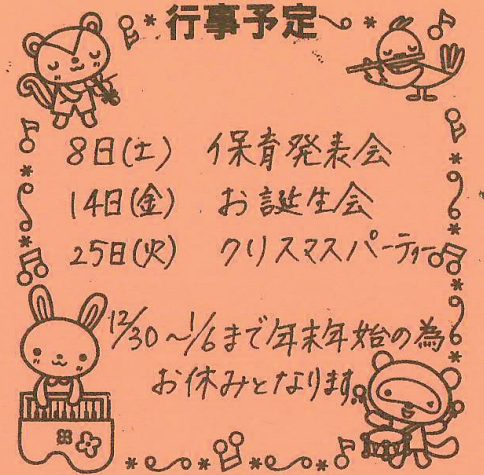 行事予定
8日(土) 保育発表会
14日(金) お誕生会
25日(火) クリスマスパーティー
12/30〜1/6まで年末年始の為
お休みとなります。